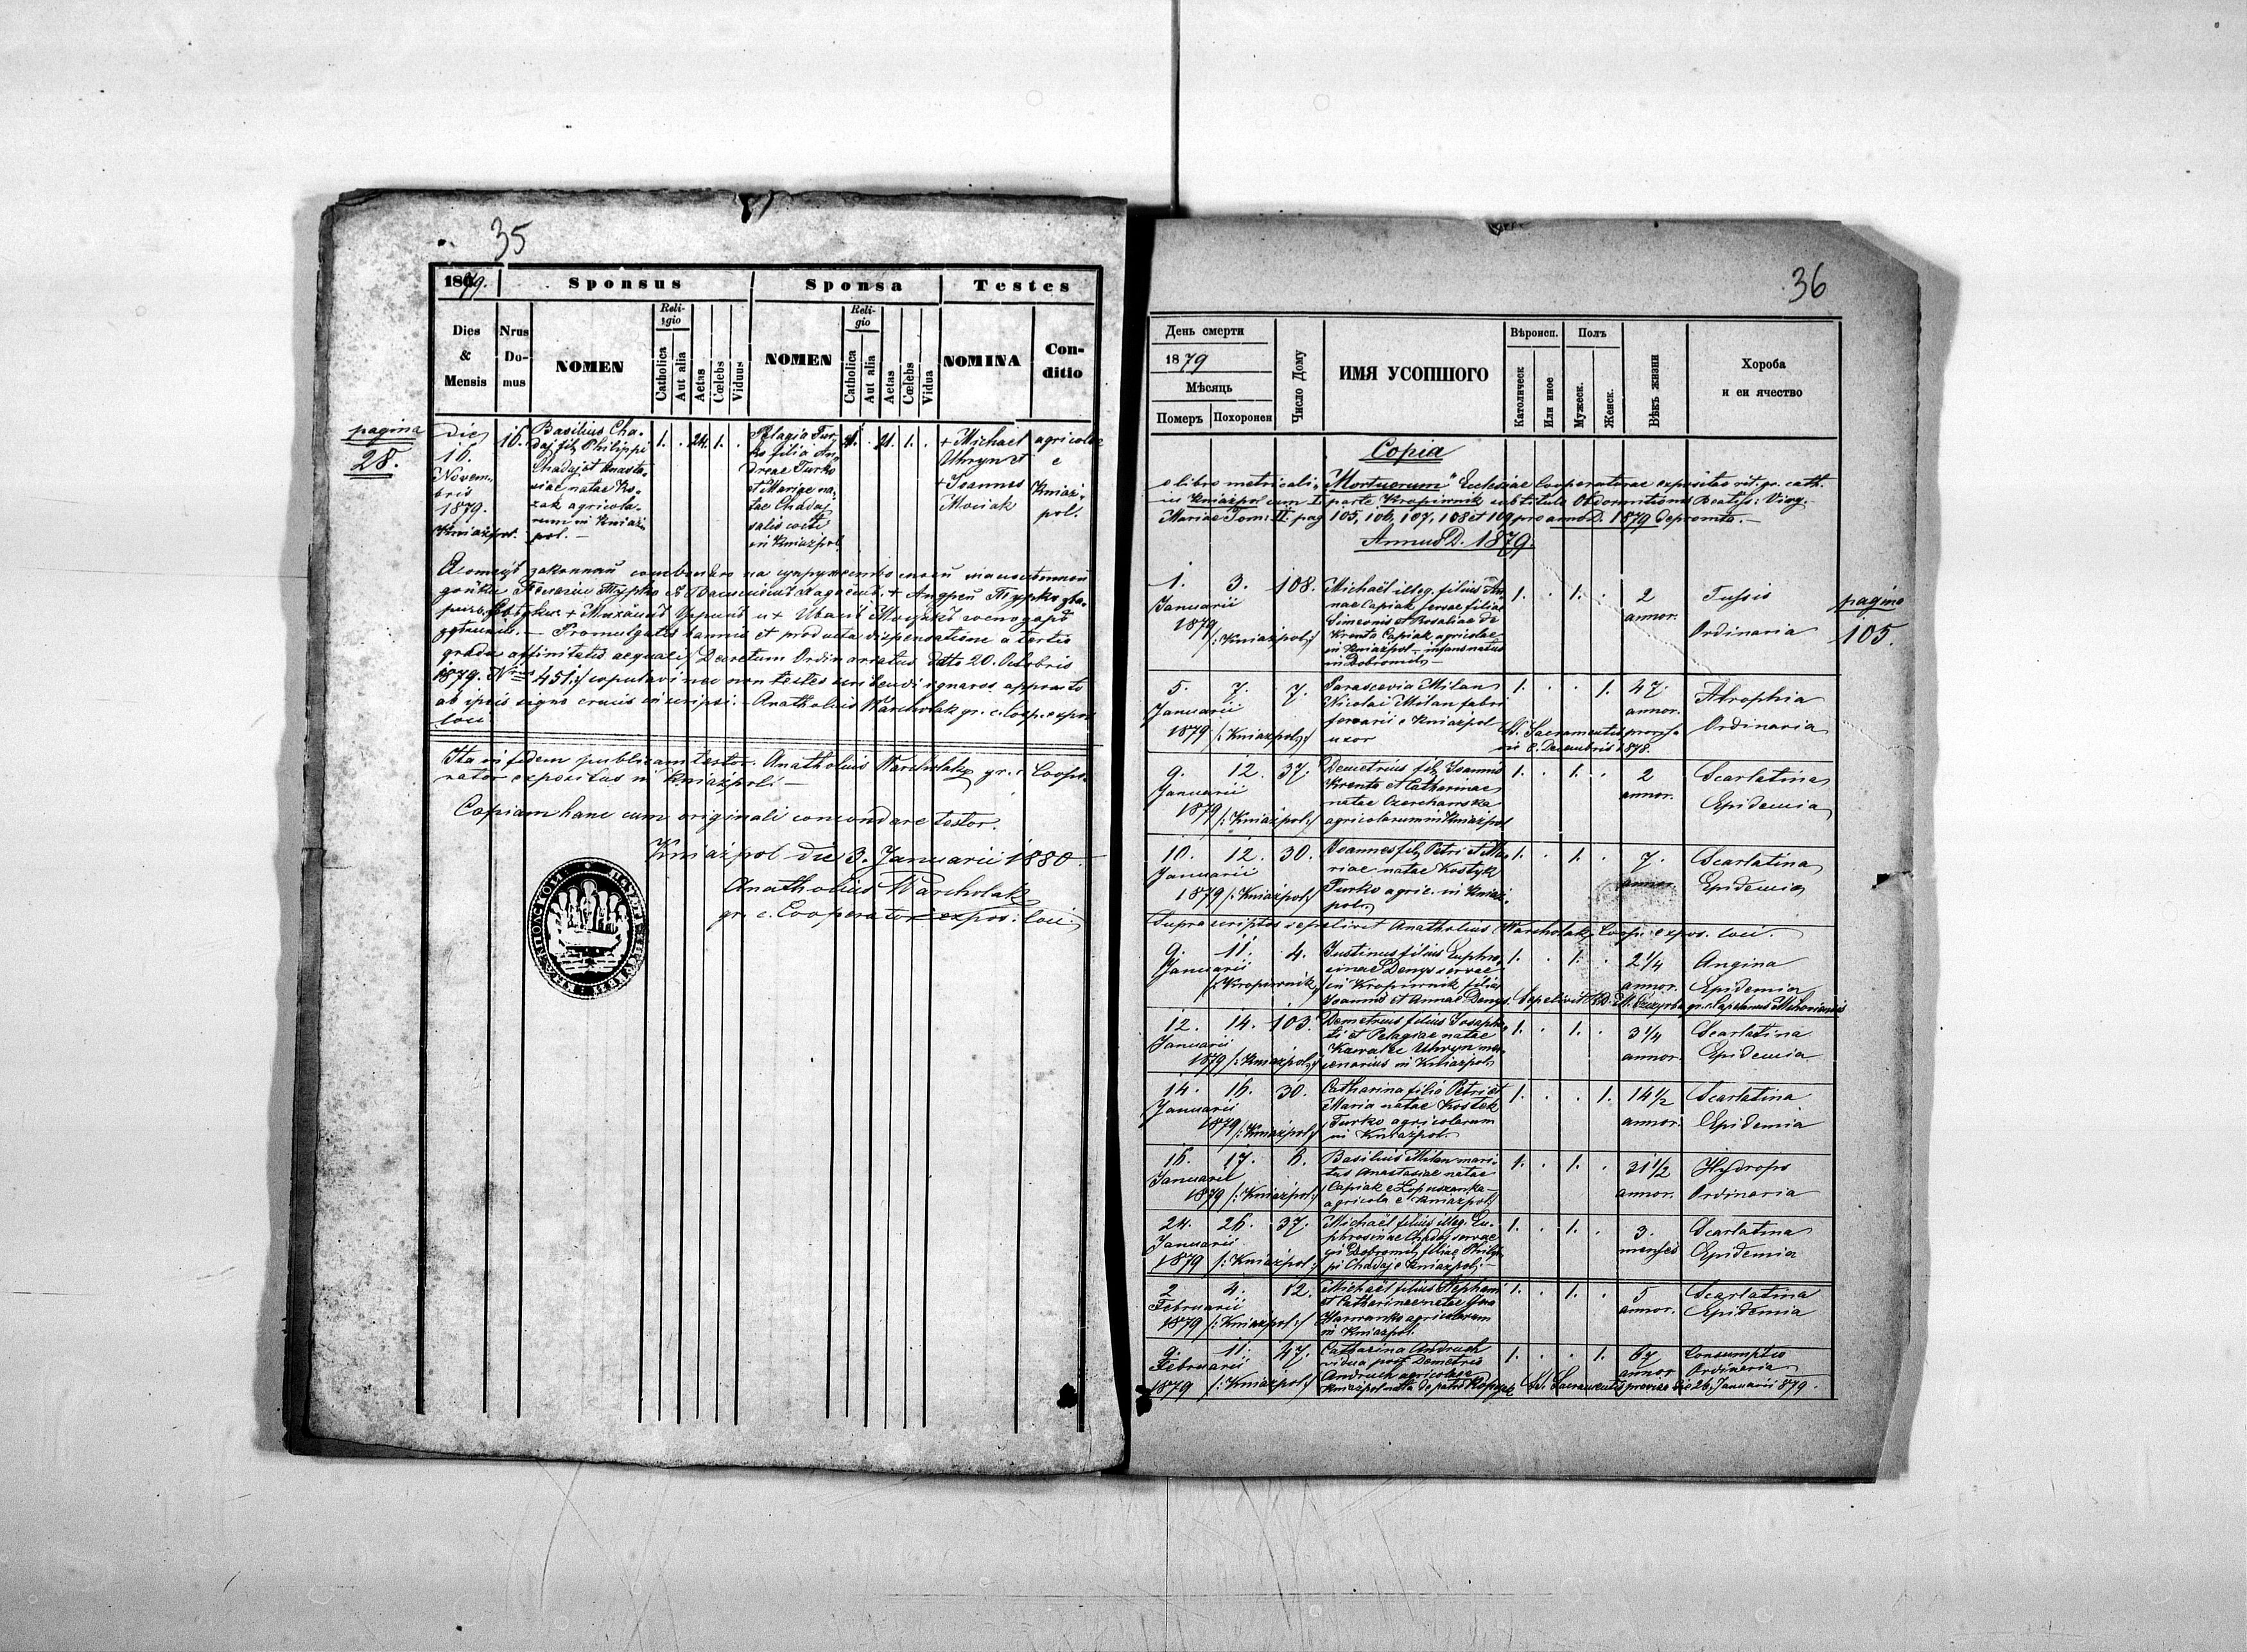 35
1879.
Sponsus
Sponsa
Testes
Dies & Mensis
Nrus Domus
NOMEN
Religio
Catholica
Aut alia
Aetas
Cœlebs
Viduus
NOMEN
Religio
Catholica
Aut alia
Aetas
Cœlebs
Vidua
NOMINA
Conditio
pagina
28.
Die
16.
Novem-
bris
1879.
Kniażpol.
16.
Basilius Cha-
daj fil. Philippi
Chadaj et Anasta-
siae natae Ko-
zak agricola-
rum in Kniaż-
pol. —
1. . 24. 1. .
Pelagia Tur-
ko filia An-
dreae Turko
et Mariae na-
tae Chadaj
in Kniażpol
1. . 21. 1. .
+ Michael
Uhryn et
+ Joannes
Mociak
agricolae
e
Kniaż-
pol.
— Promulgatis bannis et producta dispensatione a tertio
gradu affinitatis aequali /: Decretum Ordinariatus ddto 20. Octobris
1879. Nro 451 :/ copulavi nec non testes scribendi ignaros apposito
ab ipsis signo crucis inscripsi. — Anatholius Warcholak gr. c. Coop. expos.
loci.
Ita in fidem publicam testor. Anatholius Warcholak gr. c. Coope-
rator expositus in Kniażpol. —
Copiam hanc cum originali concordare testor.
Kniażpol die 3. Januarii 1880.
Anatholius Warcholak
gr. c. Cooperator expos: loci.
36
День смерти
1879
Мѣсяць
Померъ
Похоронен
Число Дому
ИМЯ УСОПШОГО
Вѣроисп.
Католическ
Или иное
Полъ
Мужеск.
Женск.
Вѣкъ жизни
Хороба
и еи ячество
Copia
e libro metricali „Mortuorum" Ecclesiae Cooperaturae expositae rit. gr. cath.
in Kniażpol cum II parte Kropiwnik sub titulo Obdormitionis Beatiss: Virg.
Mariae Tom: II. pag 105, 106, 107, 108 et 109 pro anno D. 1879 depromta. —
Annus D. 1879.
pagina
105.
1. 3. 108.
Januarii
1879 /: Kniażpol :/
Michaël illeg. filius An-
nae Capiak servae filiae
Simeonis et Rosaliae de
Krento Capiak agricolae
in Kniażpol — infans natus
in Dobromil —
1. . 1. .
2
annor.
Tussis
Ordinaria
5. 7. 7.
Januarii
1879 /: Kniażpol :/
Parascevia Milan
Nicolai Milan fabri
ferrarii e Kniażpol
uxor
1. . . 1.
47.
annor.
St. Sacramentis provisa
in 8. Decembris 1878.
Atrophia
Ordinaria
9. 12. 37.
Januarii
1879 /: Kniażpol :/
Demetrius fil. Joannis
Krento et Catharinae
natae Ozerchawska
agricolarum in Kniażpol
1. . 1. .
2
annor.
Scarlatina
Epidemia
10. 12. 30.
Januarii
1879 /: Kniażpol :/
Joannes fil. Petri et Ma-
riae natae Kostyk
Turko agric. in Kniaż-
pol.
1. . 1. .
7.
annor.
Scarlatina
Epidemia
Supra scriptos sepelivit Anatholius Warcholak Coop. expos. loci.
9. 11. 4.
Januarii
/: Kropiwnik :/
Justinus filius Euphro-
sinae Denys servae
in Kropiwnik filiae
Joannis et Annae Denys.
1. . 1. .
2 1/4
annor.
Angina
Epidemia
12. 14. 103.
Januarii
1879 /: Kniażpol :/
Demetrius filius Josapha-
ti et Pelagiae natae
Kawalec Uhryn mer-
cenarius in Kniażpol
1. . 1. .
3 1/4
annor.
Scarlatina
Epidemia
14. 16. 30.
Januarii
1879 /: Kniażpol :/
Catharina filia Petri et
Maria natae Kostek
Turko agricolarum
in Kniażpol.
1. . . 1.
14 1/2
annor.
Scarlatina
Epidemia
16. 17. 6.
Januarii
1879 /: Kniażpol :/
Basilius Milan mari-
tus Anastasiae natae
Capiak e Łopuszanka —
agricola e Kniażpol
1. . 1. .
31 1/2
annor.
Hydrops
Ordinaria
24. 26. 37.
Januarii
1879 /: Kniażpol :/
Michaël filius illeg. Eu-
phrosinae Chadaj servae
in Dobromil filiae Philip-
pi Chadaj e Kniażpol. —
1. . 1. .
3.
menses
Scarlatina
Epidemia
2 4. 12.
Februarii
1879 /: Kniażpol :/
Michaël filius Stephani
et Catharinae natae
agricolarum
in Kniażpol.
1. . 1. .
5
annor.
Scarlatina
Epidemia
9. 11. 47.
Februarii
1879 /: Kniażpol :/
Catharina Andruch
vidua post Demetrio
Andruch agricolae
Kniażpol nata de patre
1. . . 1.
67
annor
Consumptio
Ordinaria
St. Sacramentis provisa die 26. Januarii 1879.